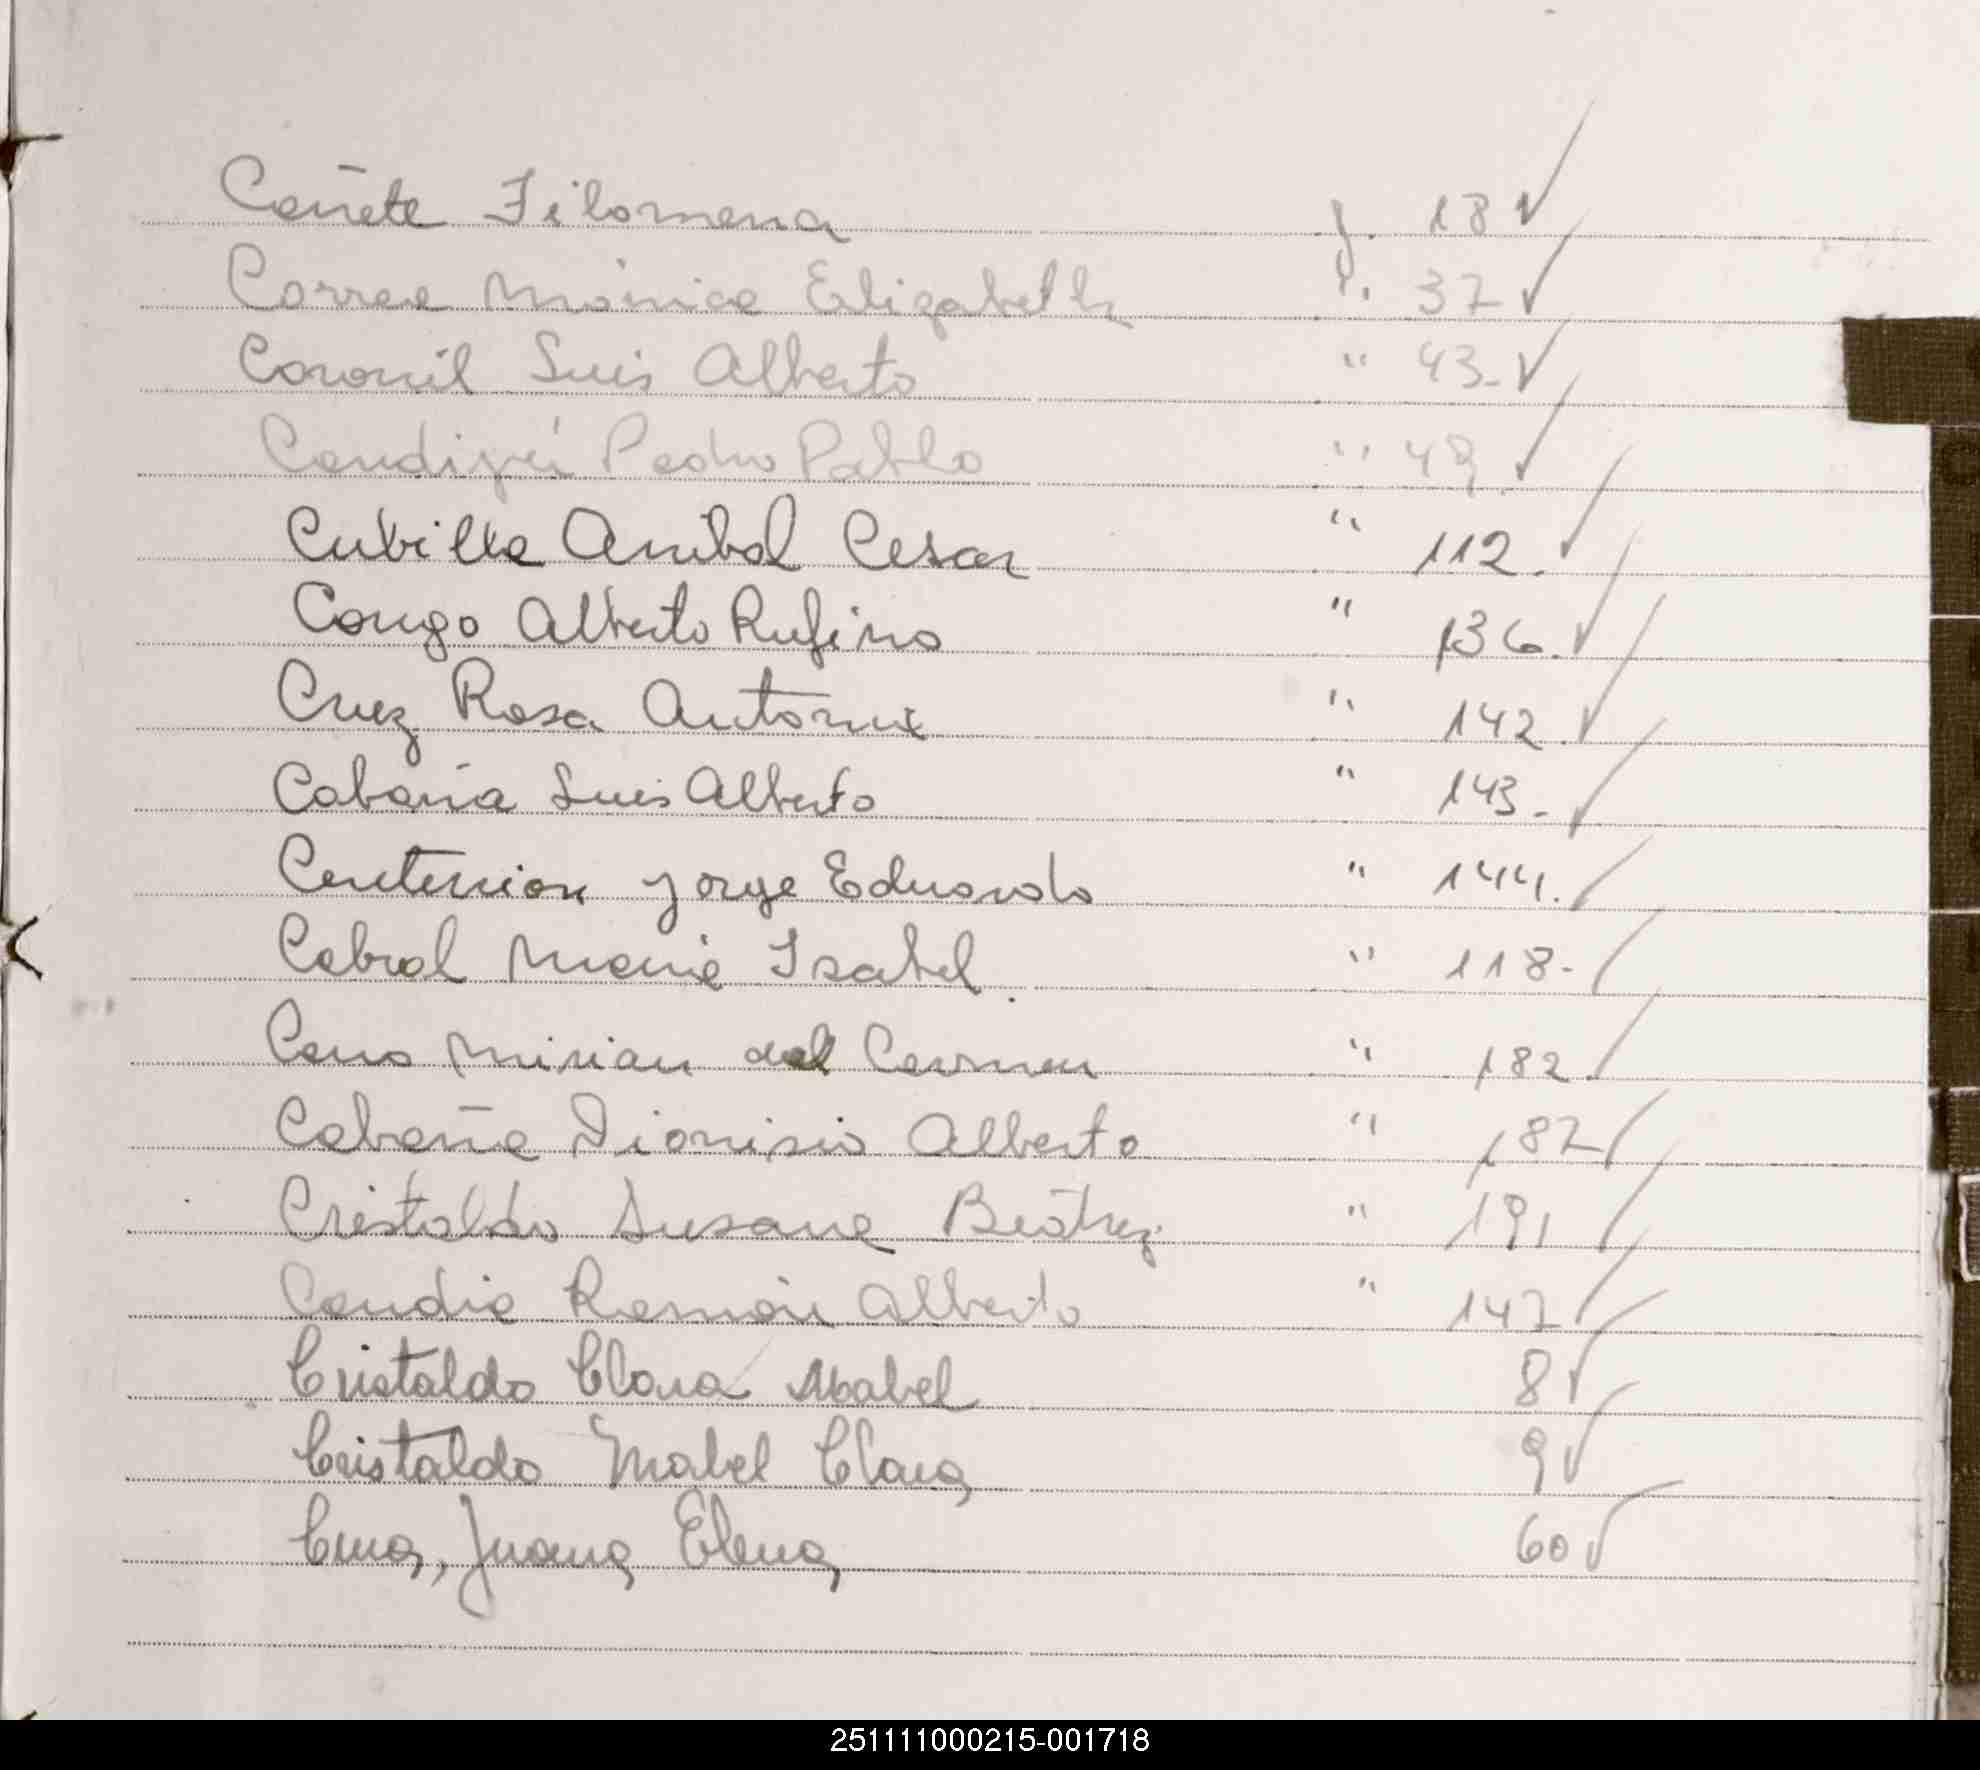 Cañete Filomena f. 18 ✓
Correa Mónica Elizabeth " 37 ✓
Coronil Luis Alberto " 43- ✓
Candiyú Pedro Pablo " 49. ✓
Cubilla Anibal Cesar " 112. ✓
Congo Alberto Rufino " 136. ✓
Cruz Rosa Antonia " 142. ✓
Cabaña Luis Alberto " 143- ✓
Centurion Jorge Eduardo " 144. ✓
Cabral Maria Isabel " 118- ✓
Cano Mirian del Carmen " 182. ✓
Cabaña Dionisio Alberto " 187 ✓
Cristaldo Susana Beatriz " 191 ✓
Candia Ramón Alberto " 147 ✓
Cristaldo Clara Mabel 8 ✓
Cristaldo Mabel Clara 9 ✓
Juana Elena 60 ✓
251111000215-001718